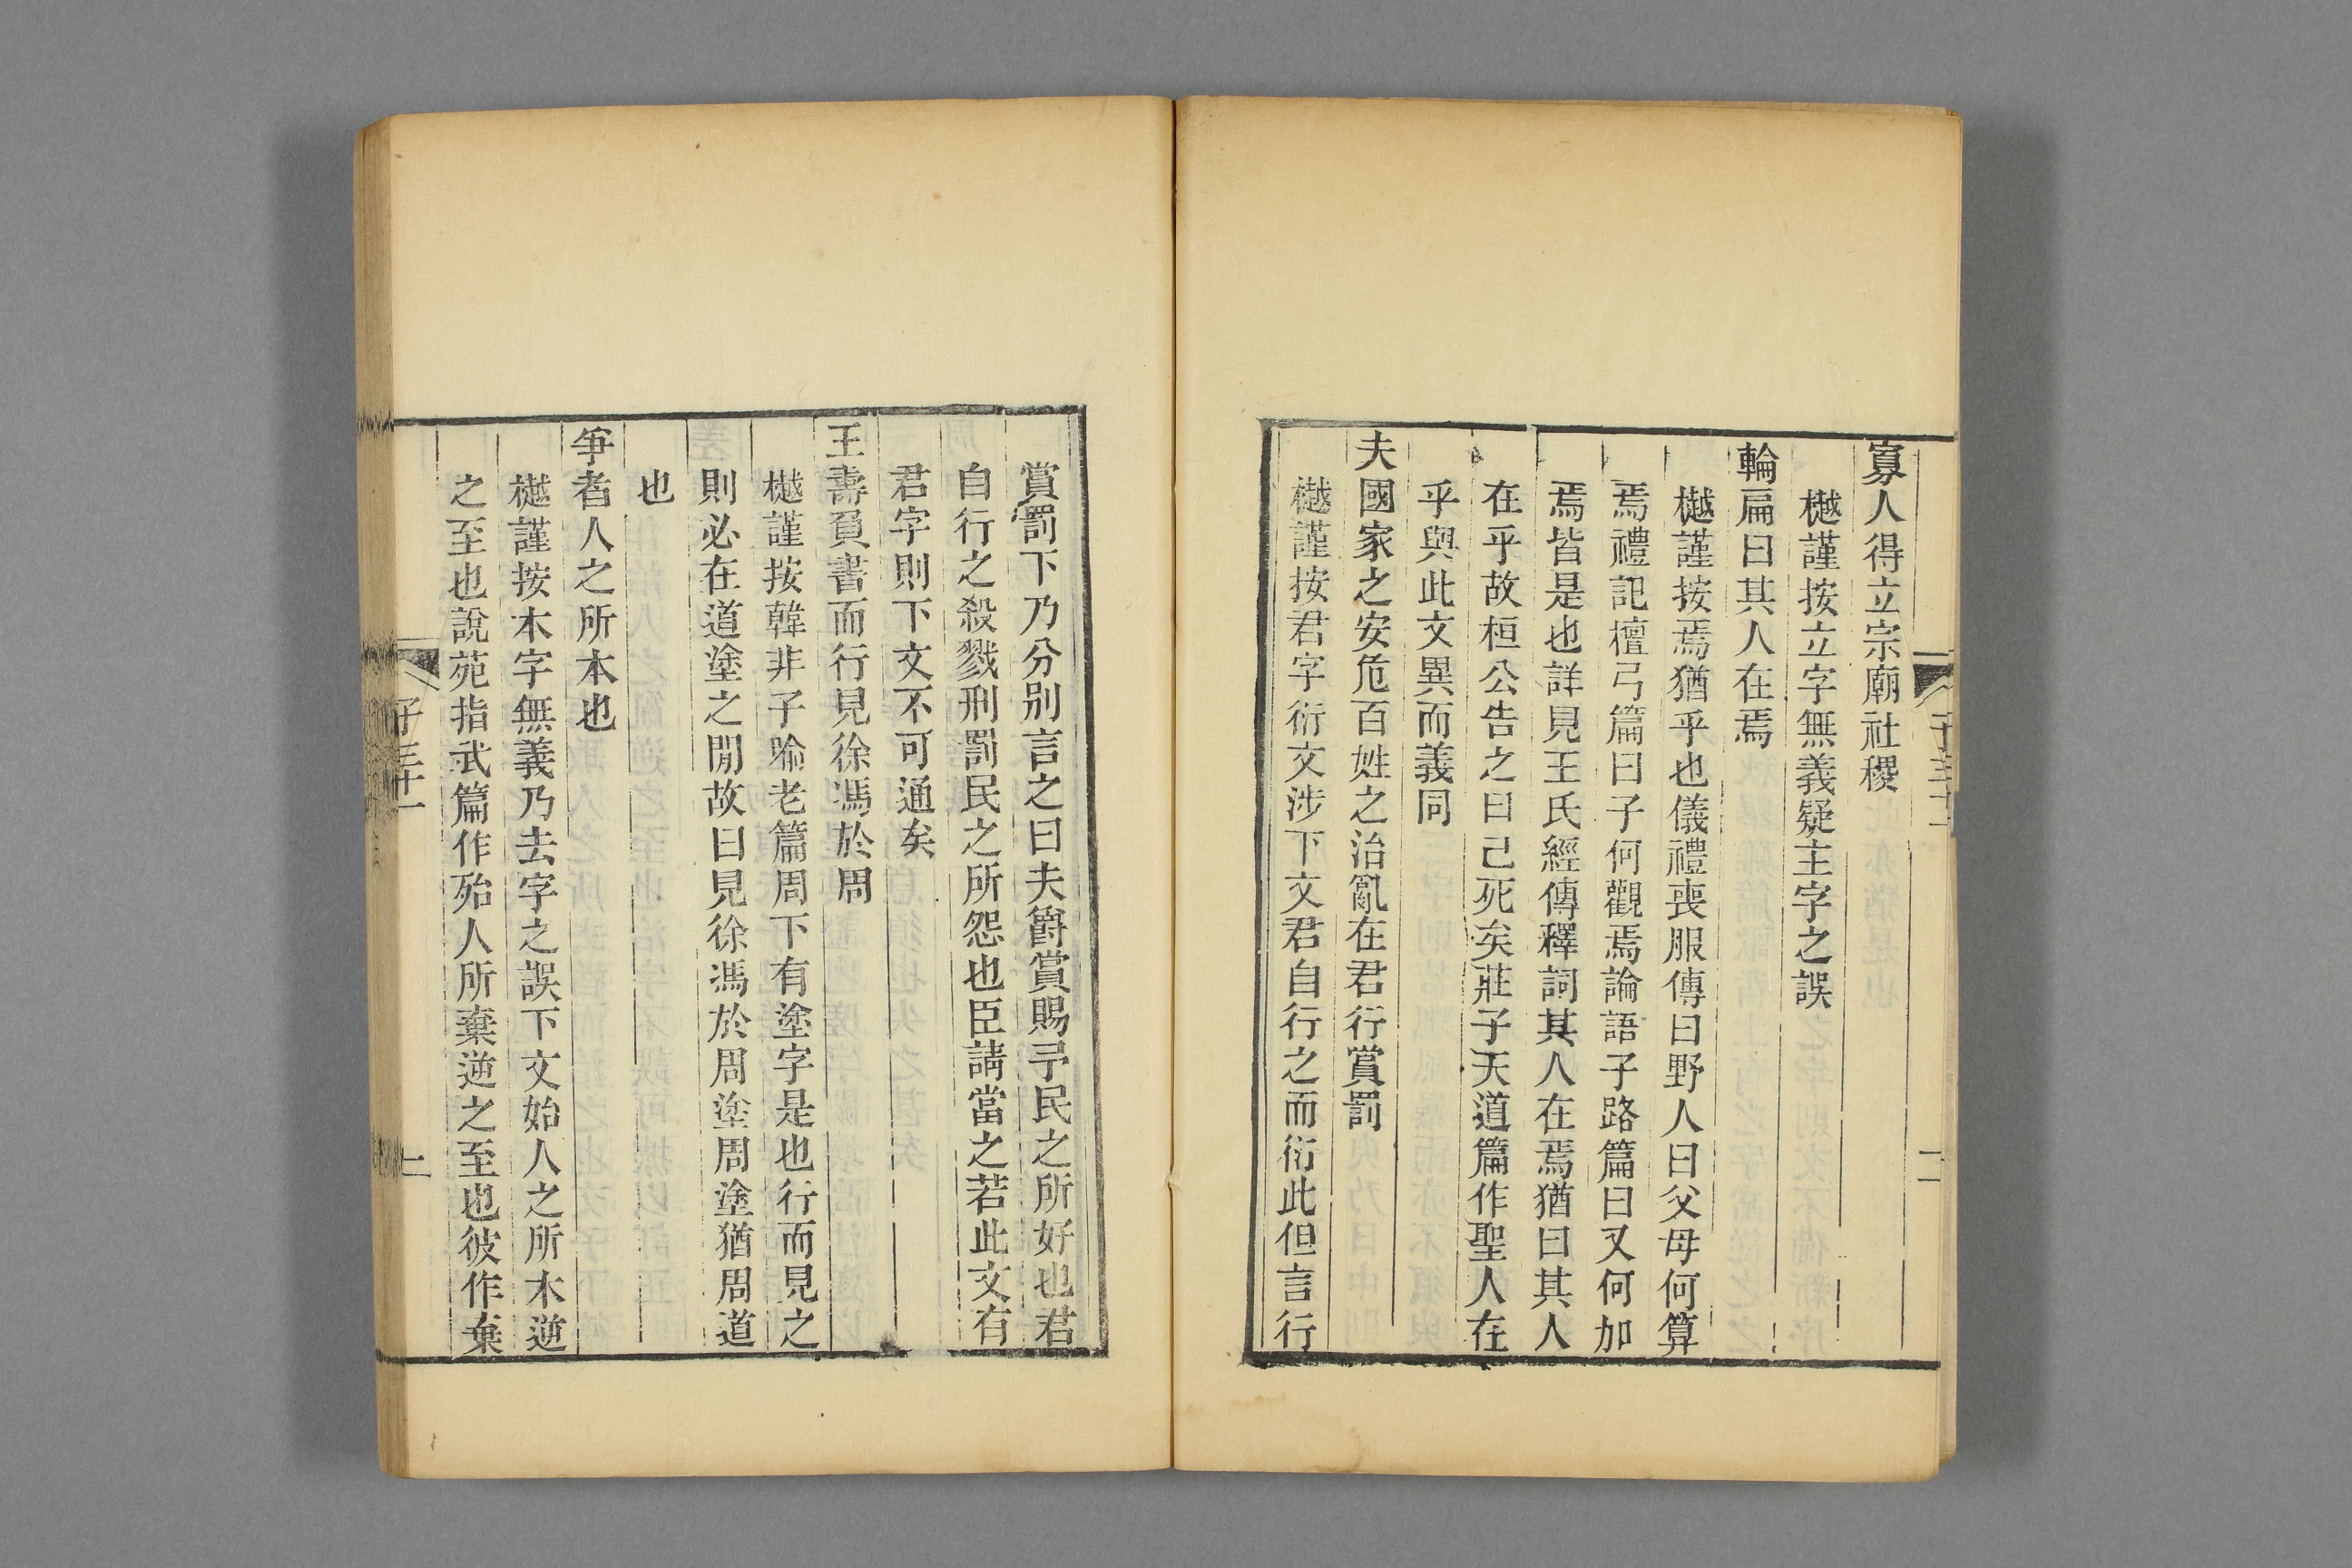 寡人得立宗廟社稷
樾謹按立字無義疑主字之誤
輪扁曰其人在焉
樾謹按焉猶乎也儀禮喪服傳曰野人曰父母何算
焉禮記檀弓篇曰子何觀焉論語子路篇曰又何加
焉皆是也詳見王氏經傳釋詞其人在焉猶曰其人
在乎故桓公告之曰已死矣莊子天道篇作聖人在
乎與此文異而義同
夫國家之安危百姓之治亂在君行賞罰
樾謹按君字衍文涉下文君自行之而衍此但言行
子三十一
二
賞罰下乃分別言之曰夫爵賞賜予民之所好也君
自行之殺戮刑罰民之所怨也臣請當之若此文有
君字則下文不可通矣
王壽負書而行見徐馮於周
樾謹按韓非子喻老篇周下有塗字是也行而見之
則必在道塗之閒故曰見徐馮於周塗周塗猶周道
也
爭者人之所本也
樾謹按本字無義乃去字之誤下文始人之所本逆
之至也說苑指武篇作殆人所棄逆之至也彼作棄
子三十一